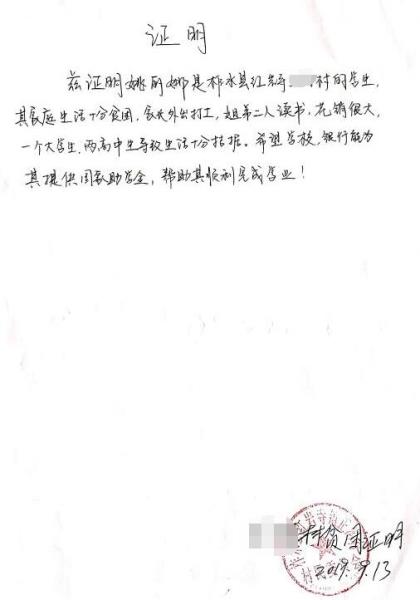 证明
兹证明姚丽娜是柞水县红岩寺村的学生,
其家庭生活十分贫困,父外出打工,姐弟二人读书,花销很大,
一个大学生,两高中生导致生活十分拮据。希望学校,银行能为
其提供国家助学金,帮助其顺利完成学业!
村贫困证明
2019.9.13